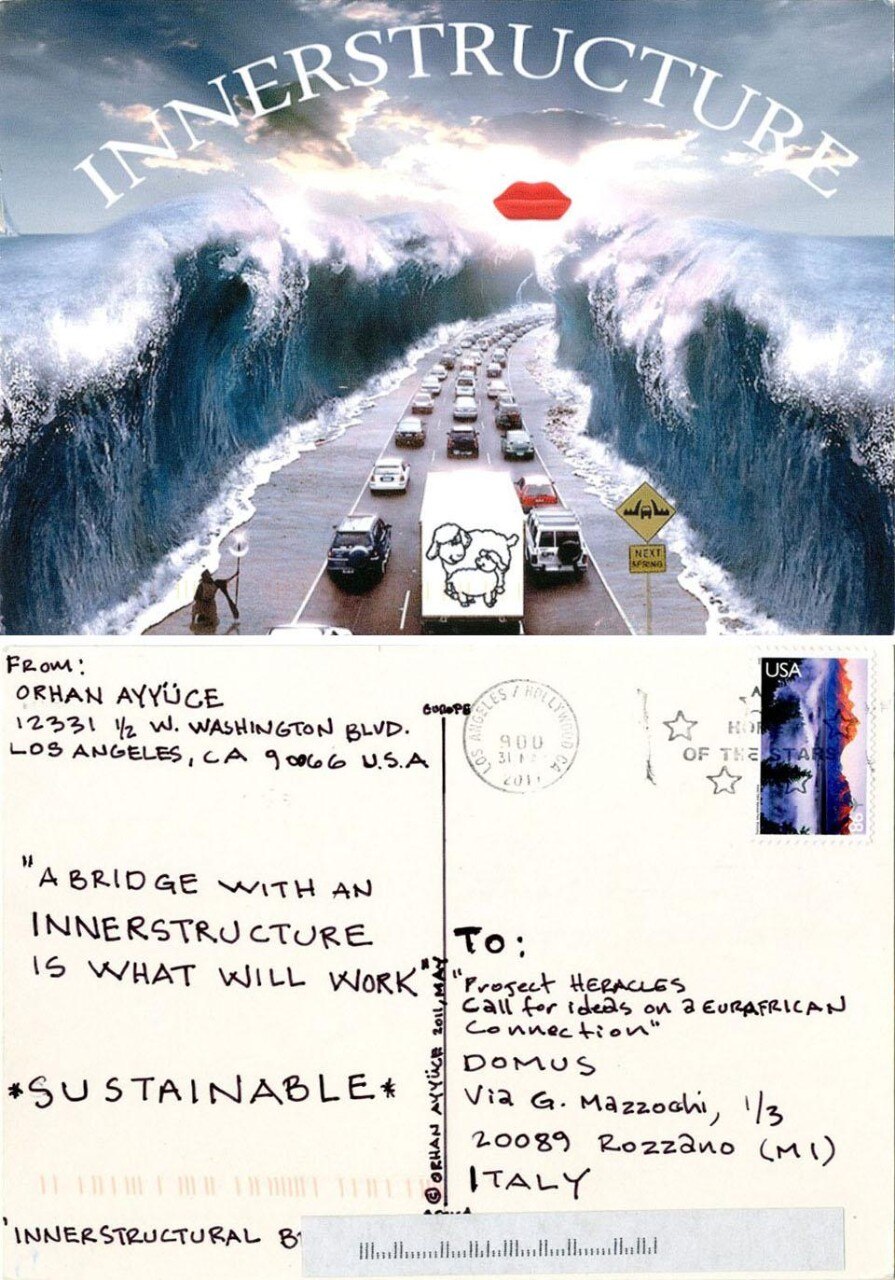 INNERSTRUCTURE
NEXT
SPRING
FROM:
ORHAN AYYÜCE
12331 1/2 W. WASHINGTON BLVD.
LOS ANGELES, CA 90066 U.S.A
"A BRIDGE WITH AN
INNERSTRUCTURE
IS WHAT WILL WORK"
*SUSTAINABLE*
"INNERSTRUCTURAL
EUROPE
© ORHAN AYYÜCE 2011, MAY
LOS ANGELES / HOLLYWOOD CA
900
31
2011
OF THE STARS
USA
86
TO:
"Project HERACLES
Call for ideas on a EURAFRICAN
Connection"
DOMUS
Via G. Mazzochi, 1/3
20089 Rozzano (MI)
ITALY